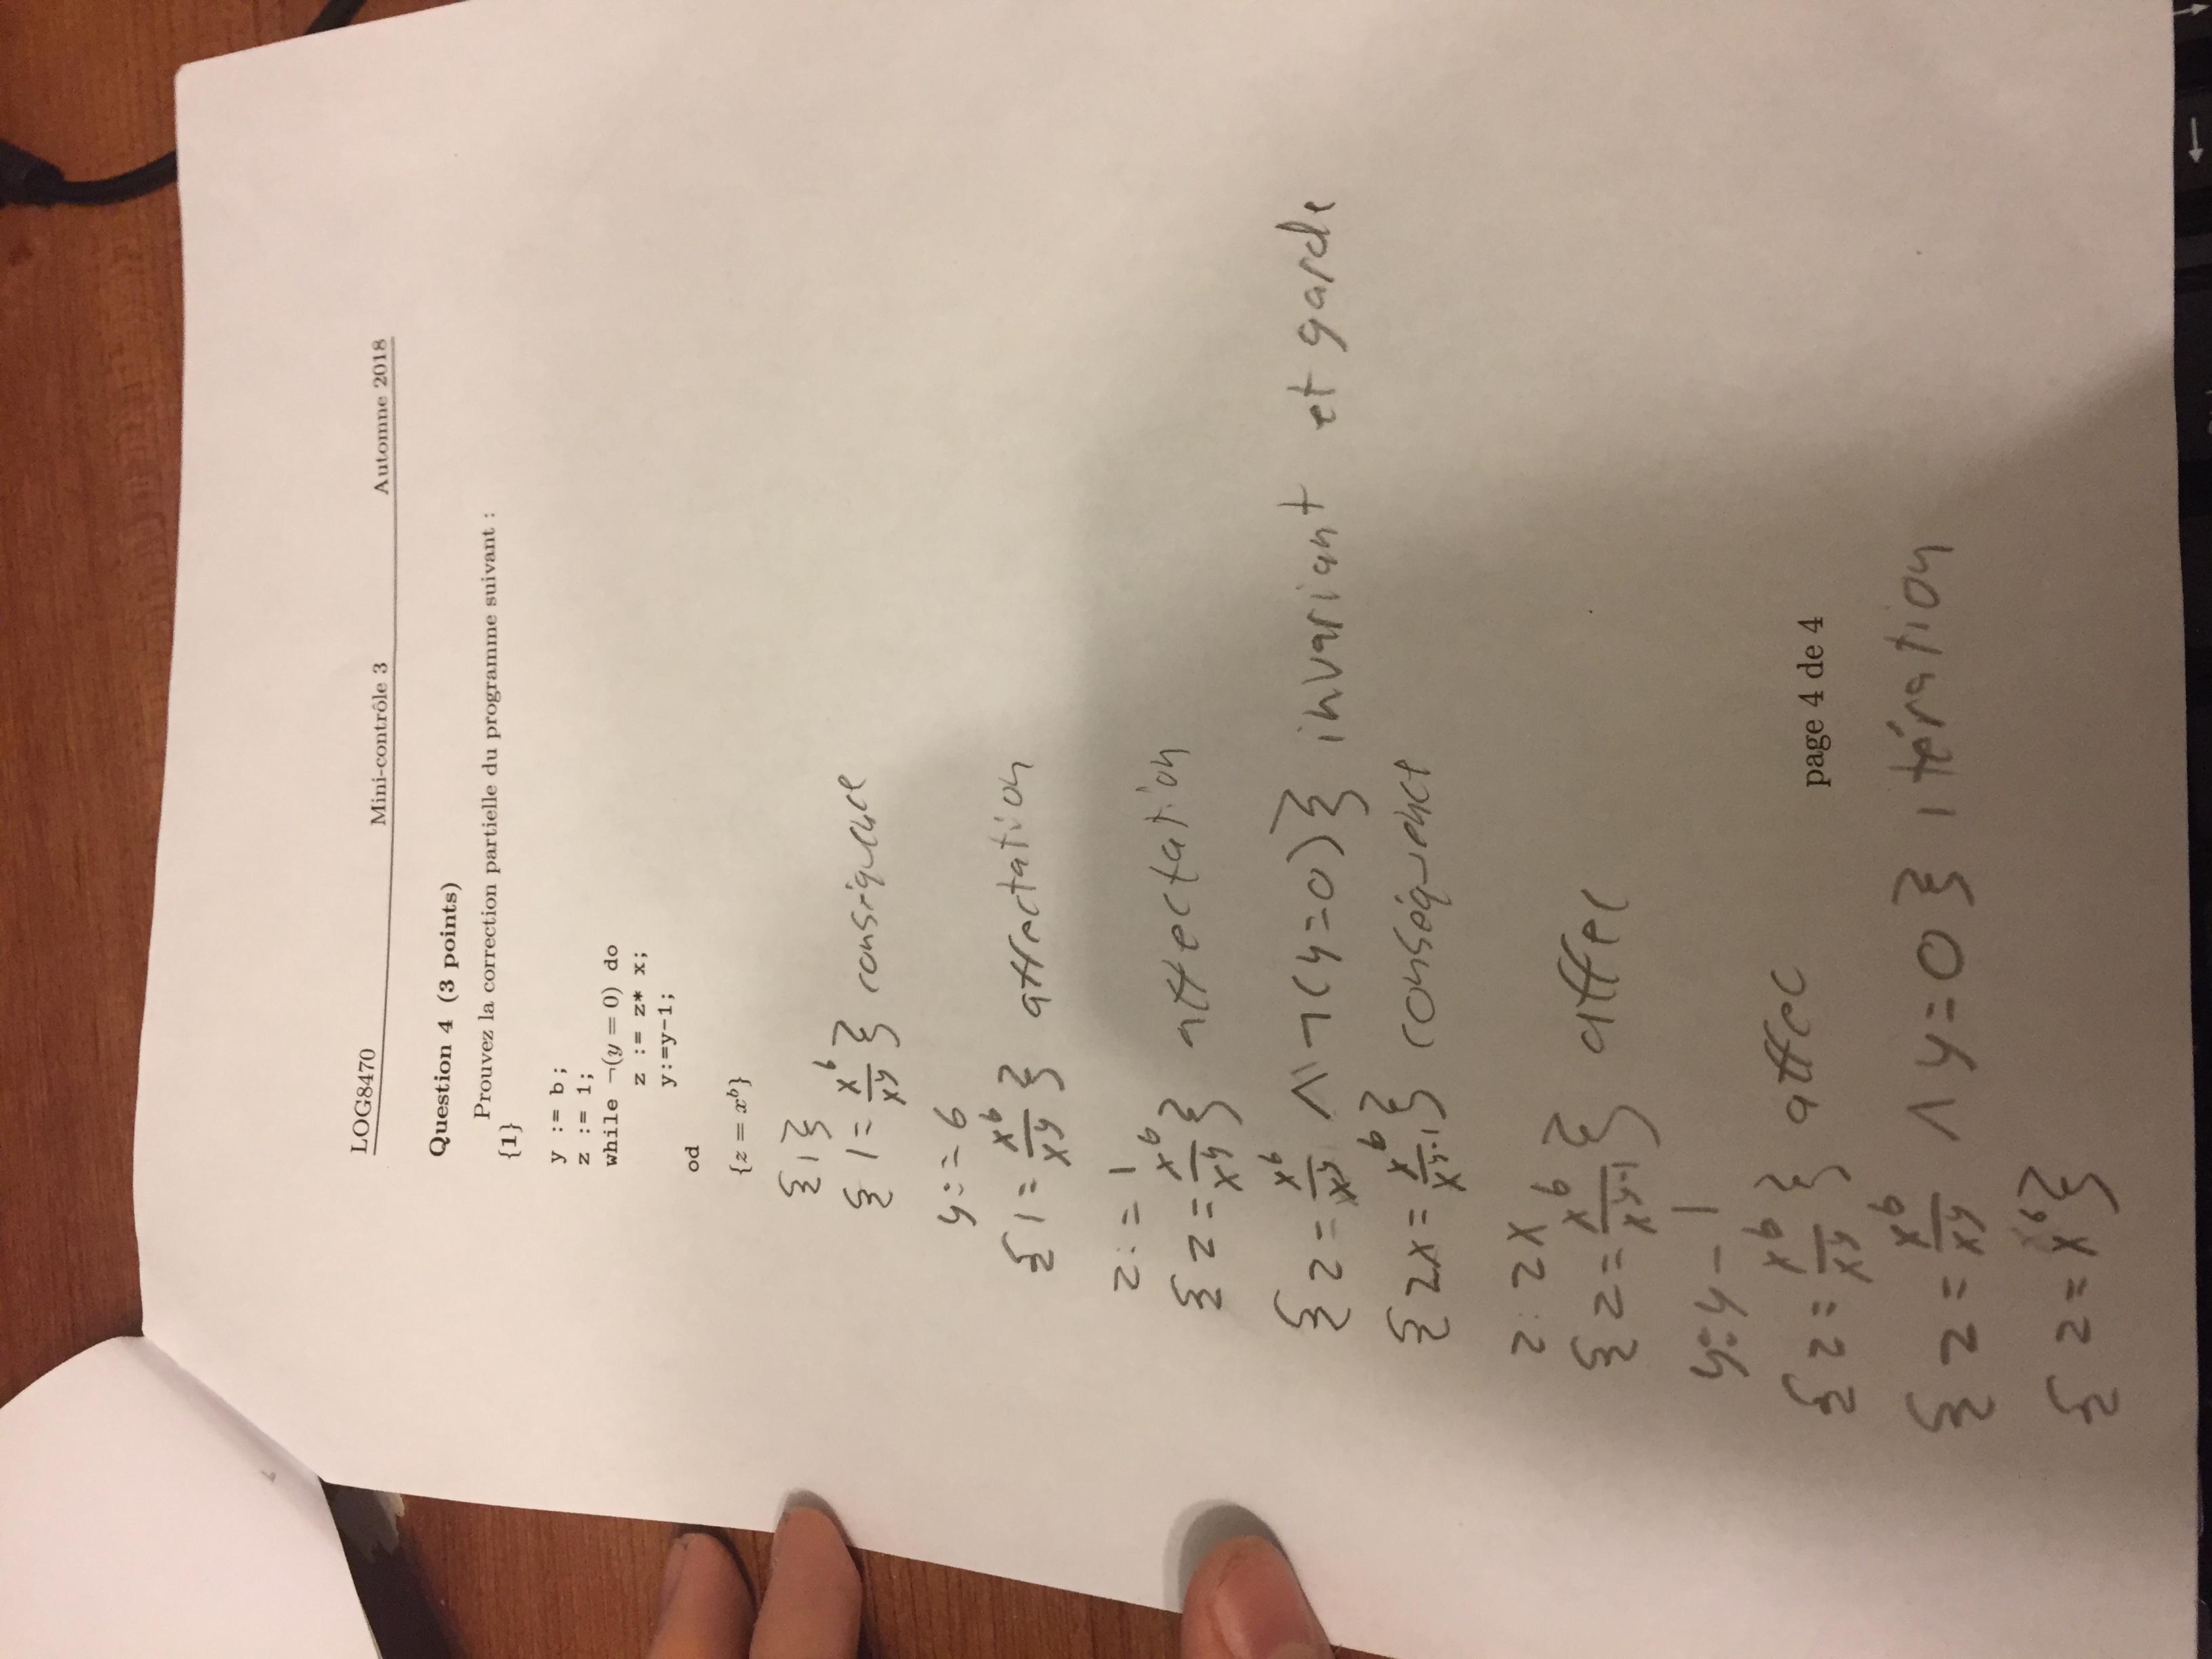 LOG8470 Mini-contrôle 3 Automne 2018
Question 4 (3 points)
Prouvez la correction partielle du programme suivant :
{1}
y := b;
z := 1;
while ¬(y = 0) do
z := z* x;
y:=y-1;
od
{z = x^b}
{1}
{1 = x^b/x^y} conséquence
y:=b
{1 = x^b/x^y} affectation
z:=1
{z = x^b/x^y} affectation
{z = x^b/x^y ∧ ¬(y=0)} invariant et garde
{zx = x^b/x^y-1} conséquence
z: zx
{z = x^b/x^y-1} affec
y:=y-1
{z = x^b/x^y} affec
page 4 de 4
{z = x^b/x^y ∧ y=0} itération
{z = x^b}